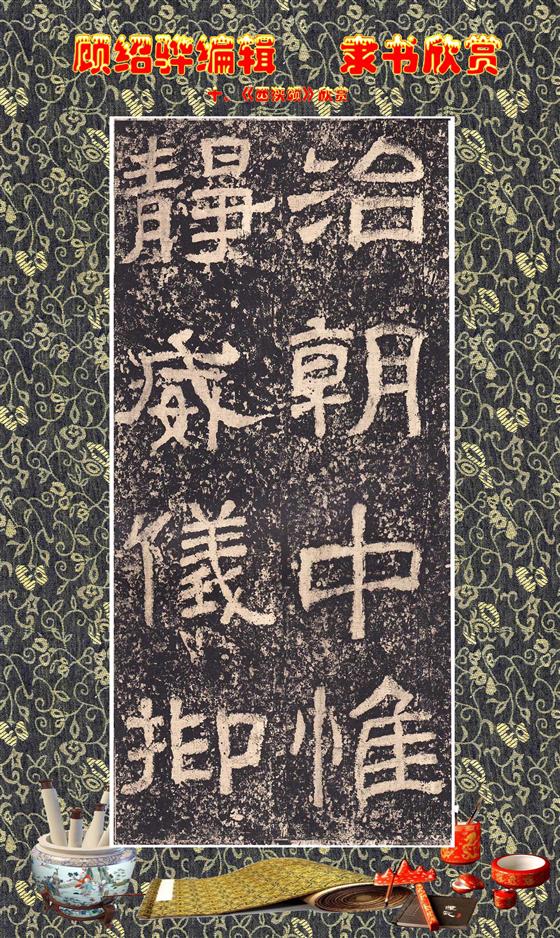 顾绍骅编辑 隶书欣赏
十、《西狭颂》欣赏
治朝中惟
静威儀抑